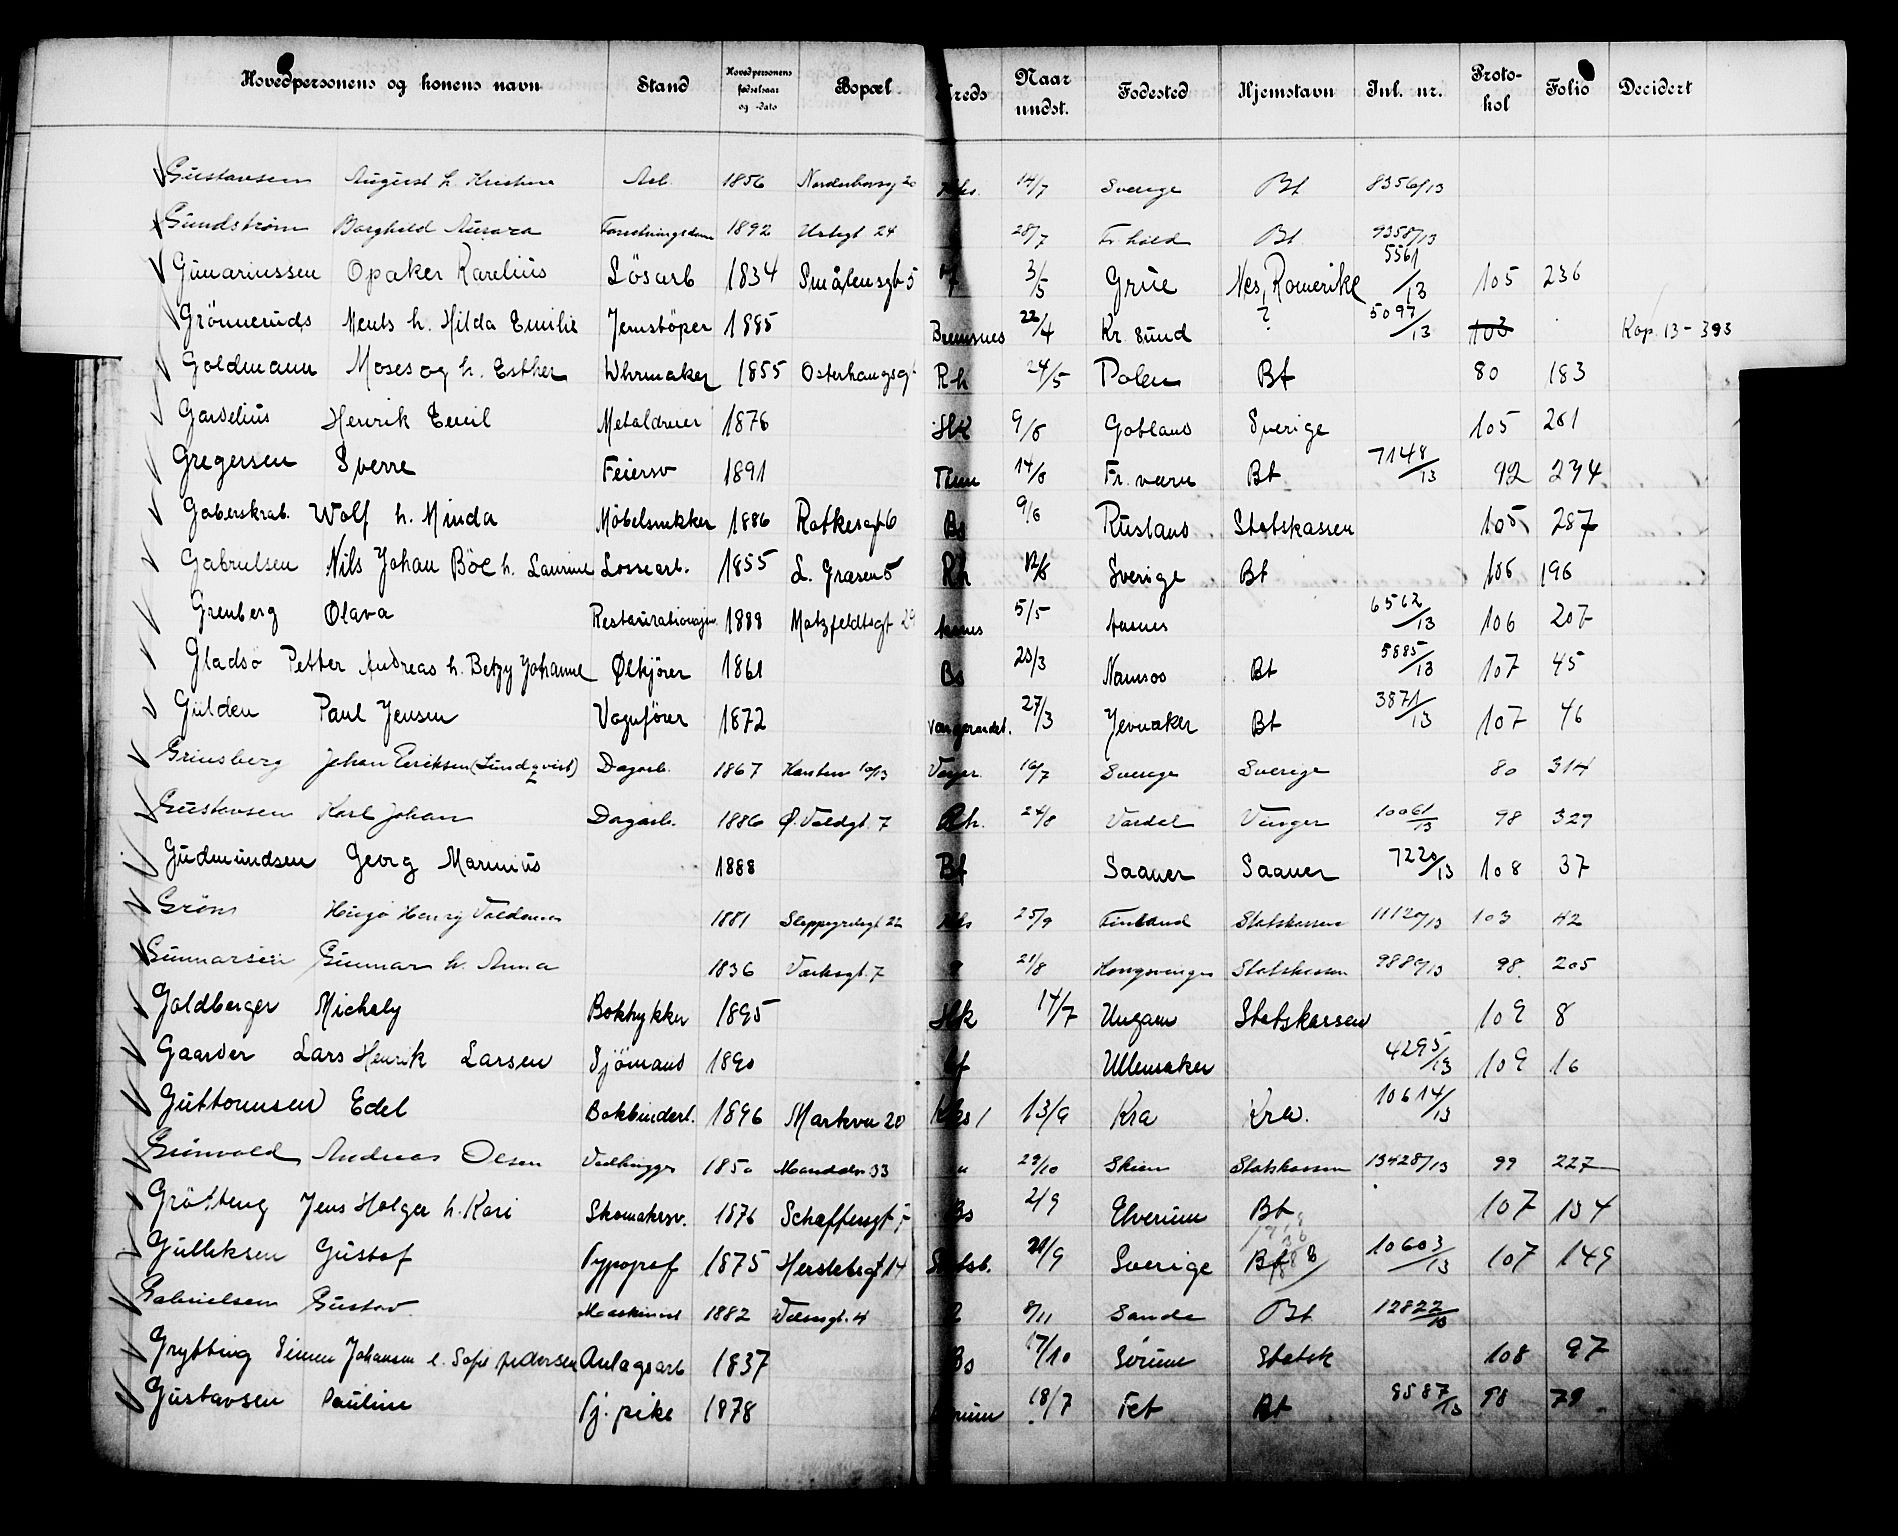 Hovedpersonens og konens navn Stand Hovedpersonens fødselsaar og -dato Bopæl Kreds Naar undst. Fødested Hjemstavn Inl. nr. Protokol Folio Decidert
Gustavsen August h. Kristine Arb. 1856 20 14/7 Sverige Bt 8356/13
Gundstrøm Borghild Aurora 1892 Urtegt 24 28/7 Fr.hald Bt. 9358/13
Gunariussen Opaker Karelius Løsarb 1834 Smålensgt 5 3/5 Grue Nes, Romerike 5561/13 105 236
Grönneruds Ments h. Hilda Emilie Jernstöper 1885 Bremsnes 22/4 Kr. sund ? 5097/13 103 Kop. 13-393
Goldmann Moses og h. Esther Uhrmaker 1855 Osterhausgt Rh 24/5 Polen Bt 80 183
Gardelius Henrik Emil Metaldreier 1876 Hk 9/6 Gotland Sverige 105 261
Gregersen Sverre Feiersv 1891 14/6 Fr. værn Bt 7148/13 92 274
Goberskrab. Wolf h. Minda Möbelsnekker 1886 Ratkesgt 6 Bs 9/6 Rusland Statskassen 105 287
Gabrielsen Nils Johan Böe h. Laurine Lossearb. 1855 L. Græsen 5 Rh 12/6 Sverige Bt 106 196
Grenberg Olava 1889 Motzfeldtsgt 29 Aasnes 5/5 Aasnes 6562/13 106 207
Gladsø Petter Andreas h. Betzy Johanne Ølkjører 1861 Bs 28/3 Namsos Bt 5885/13 107 45
Gulden Paul Jensen Vognfører 1872 27/3 Jevnaker Bt 3871/13 107 46
Grinsberg Johan Eriksen (Lindqvist) Dagarb. 1867 16/7 Sverige Sverige 80 314
Gustavsen Karl Johan Dagarb. 1886 Ø. Voldgt. 7 Rh. 24/8 Vardal Vinger 10061/13 98 329
Gudmundsen Georg Marinius 1888 Bf Saaner Saaner 7220/13 108 37
Grøn Hugo Henry Valdemar 1881 22 25/9 Finland Statskassen 11120/13 103 42
Gunnarsen Gunnar h. Anna 1836 Verksgt. 7 21/8 Kongsvinger Statskassen 9880/13 98 205
Goldberger Michaly Boktrykker 1895 Hk 14/7 Ungarn Statskassen 109 8
Gaarder Lars Henrik Larsen Sjömand 1890 Bf Ullensaker 4295/13 109 16
Guttormsen Edel Bokbinderl. 1896 Markvn 20 13/9 Kra Kra. 10614/13
Grünvold Andreas Olsen Vedhugger 1850 Mariddn 33 " 29/10 Skien Statskassen 13428/13 99 227
Gröttteng Jens Holger h. Kari Skomakersv. 1876 Schæffersgt 7 Bs 2/9 Elverum Bt 107 134
Gulliksen Gustaf Typograf 1875 Herslebsgt 14 Statsb. 21/9 Sverige Bt 10603/13 107 149
Gabrielsen Gustav Maskinist 1882 4 8/11 Sande Bt 12822/13
Grytting Simen Johansen e. Sofie Pedersen Anlægsarb 1837 Bs 17/10 Sørum Statsk 108 97
Gustavsen Pauline Tj. pike 1878 18/7 Fet Bt 9587/13 98 79